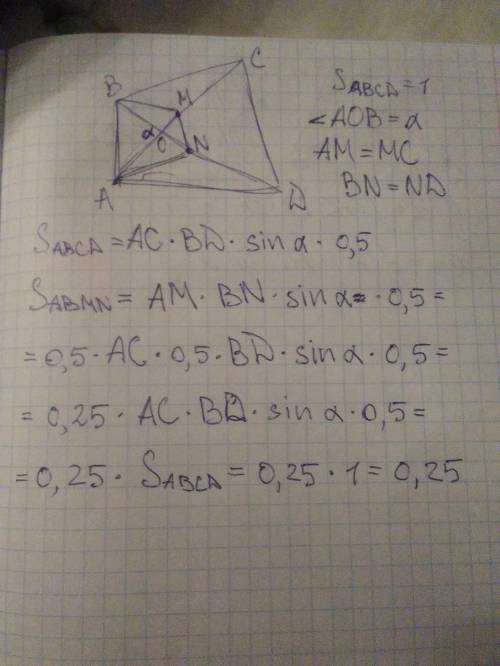 B
C
M
α
O
N
A
D
S_ABCD = 1
∠AOB = α
AM = MC
BN = ND
S_ABCD = AC · BD · sin α · 0,5
S_ABMN = AM · BN · sin α · 0,5 =
= 0,5 · AC · 0,5 · BD · sin α · 0,5 =
= 0,25 · AC · BD · sin α · 0,5 =
= 0,25 · S_ABCD = 0,25 · 1 = 0,25